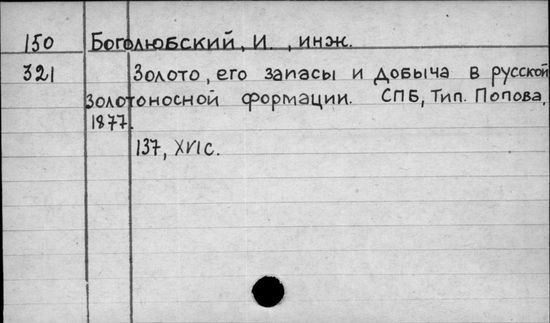 150 Боголюбский, И. , инж.
321 Золото, его запасы и добыча в русской
золотоносной формации. СПБ, Тип. Попова,
1877.
137, XVI с.